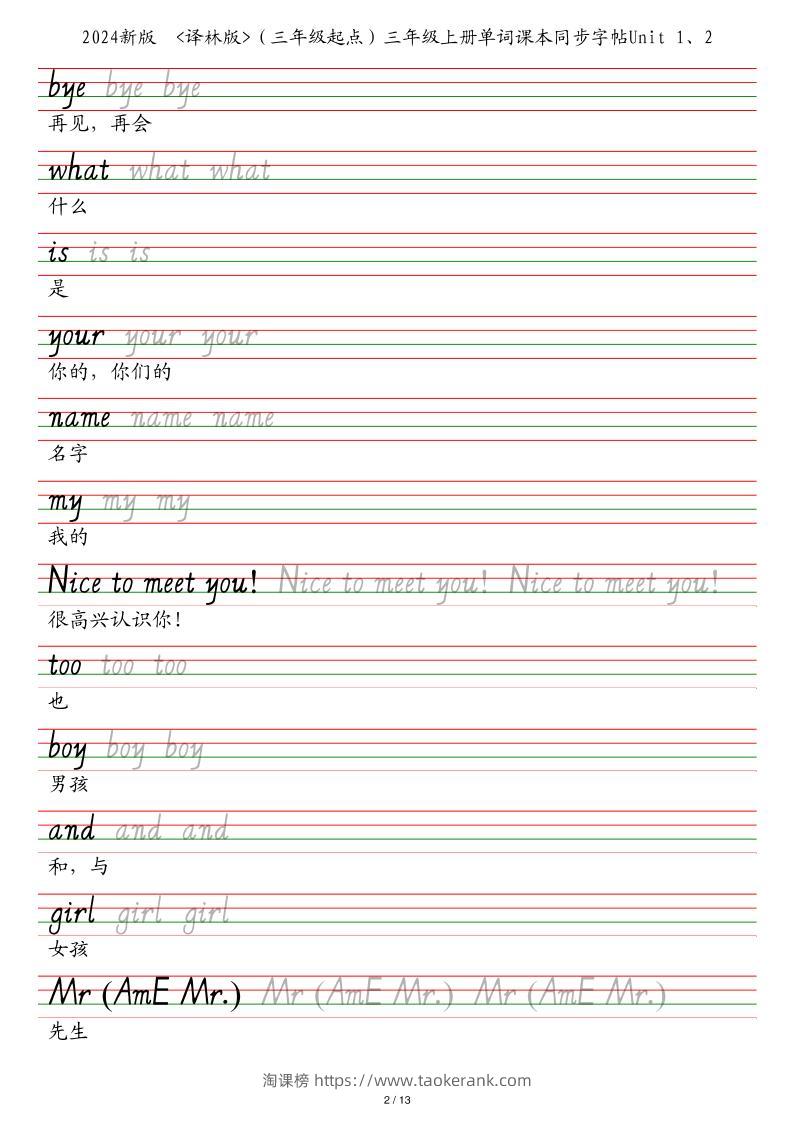 2024新版 <译林版>（三年级起点）三年级上册单词课本同步字帖Unit 1、2
bye bye bye
再见，再会
what what what
什么
is is is
是
your your your
你的，你们的
name name name
名字
my my my
我的
Nice to meet you! Nice to meet you! Nice to meet you!
很高兴认识你！
too too too
也
boy boy boy
男孩
and and and
和，与
girl girl girl
女孩
Mr (AmE Mr.) Mr (AmE Mr.) Mr (AmE Mr.)
先生
淘课榜 https://www.taokerank.com
2 / 13